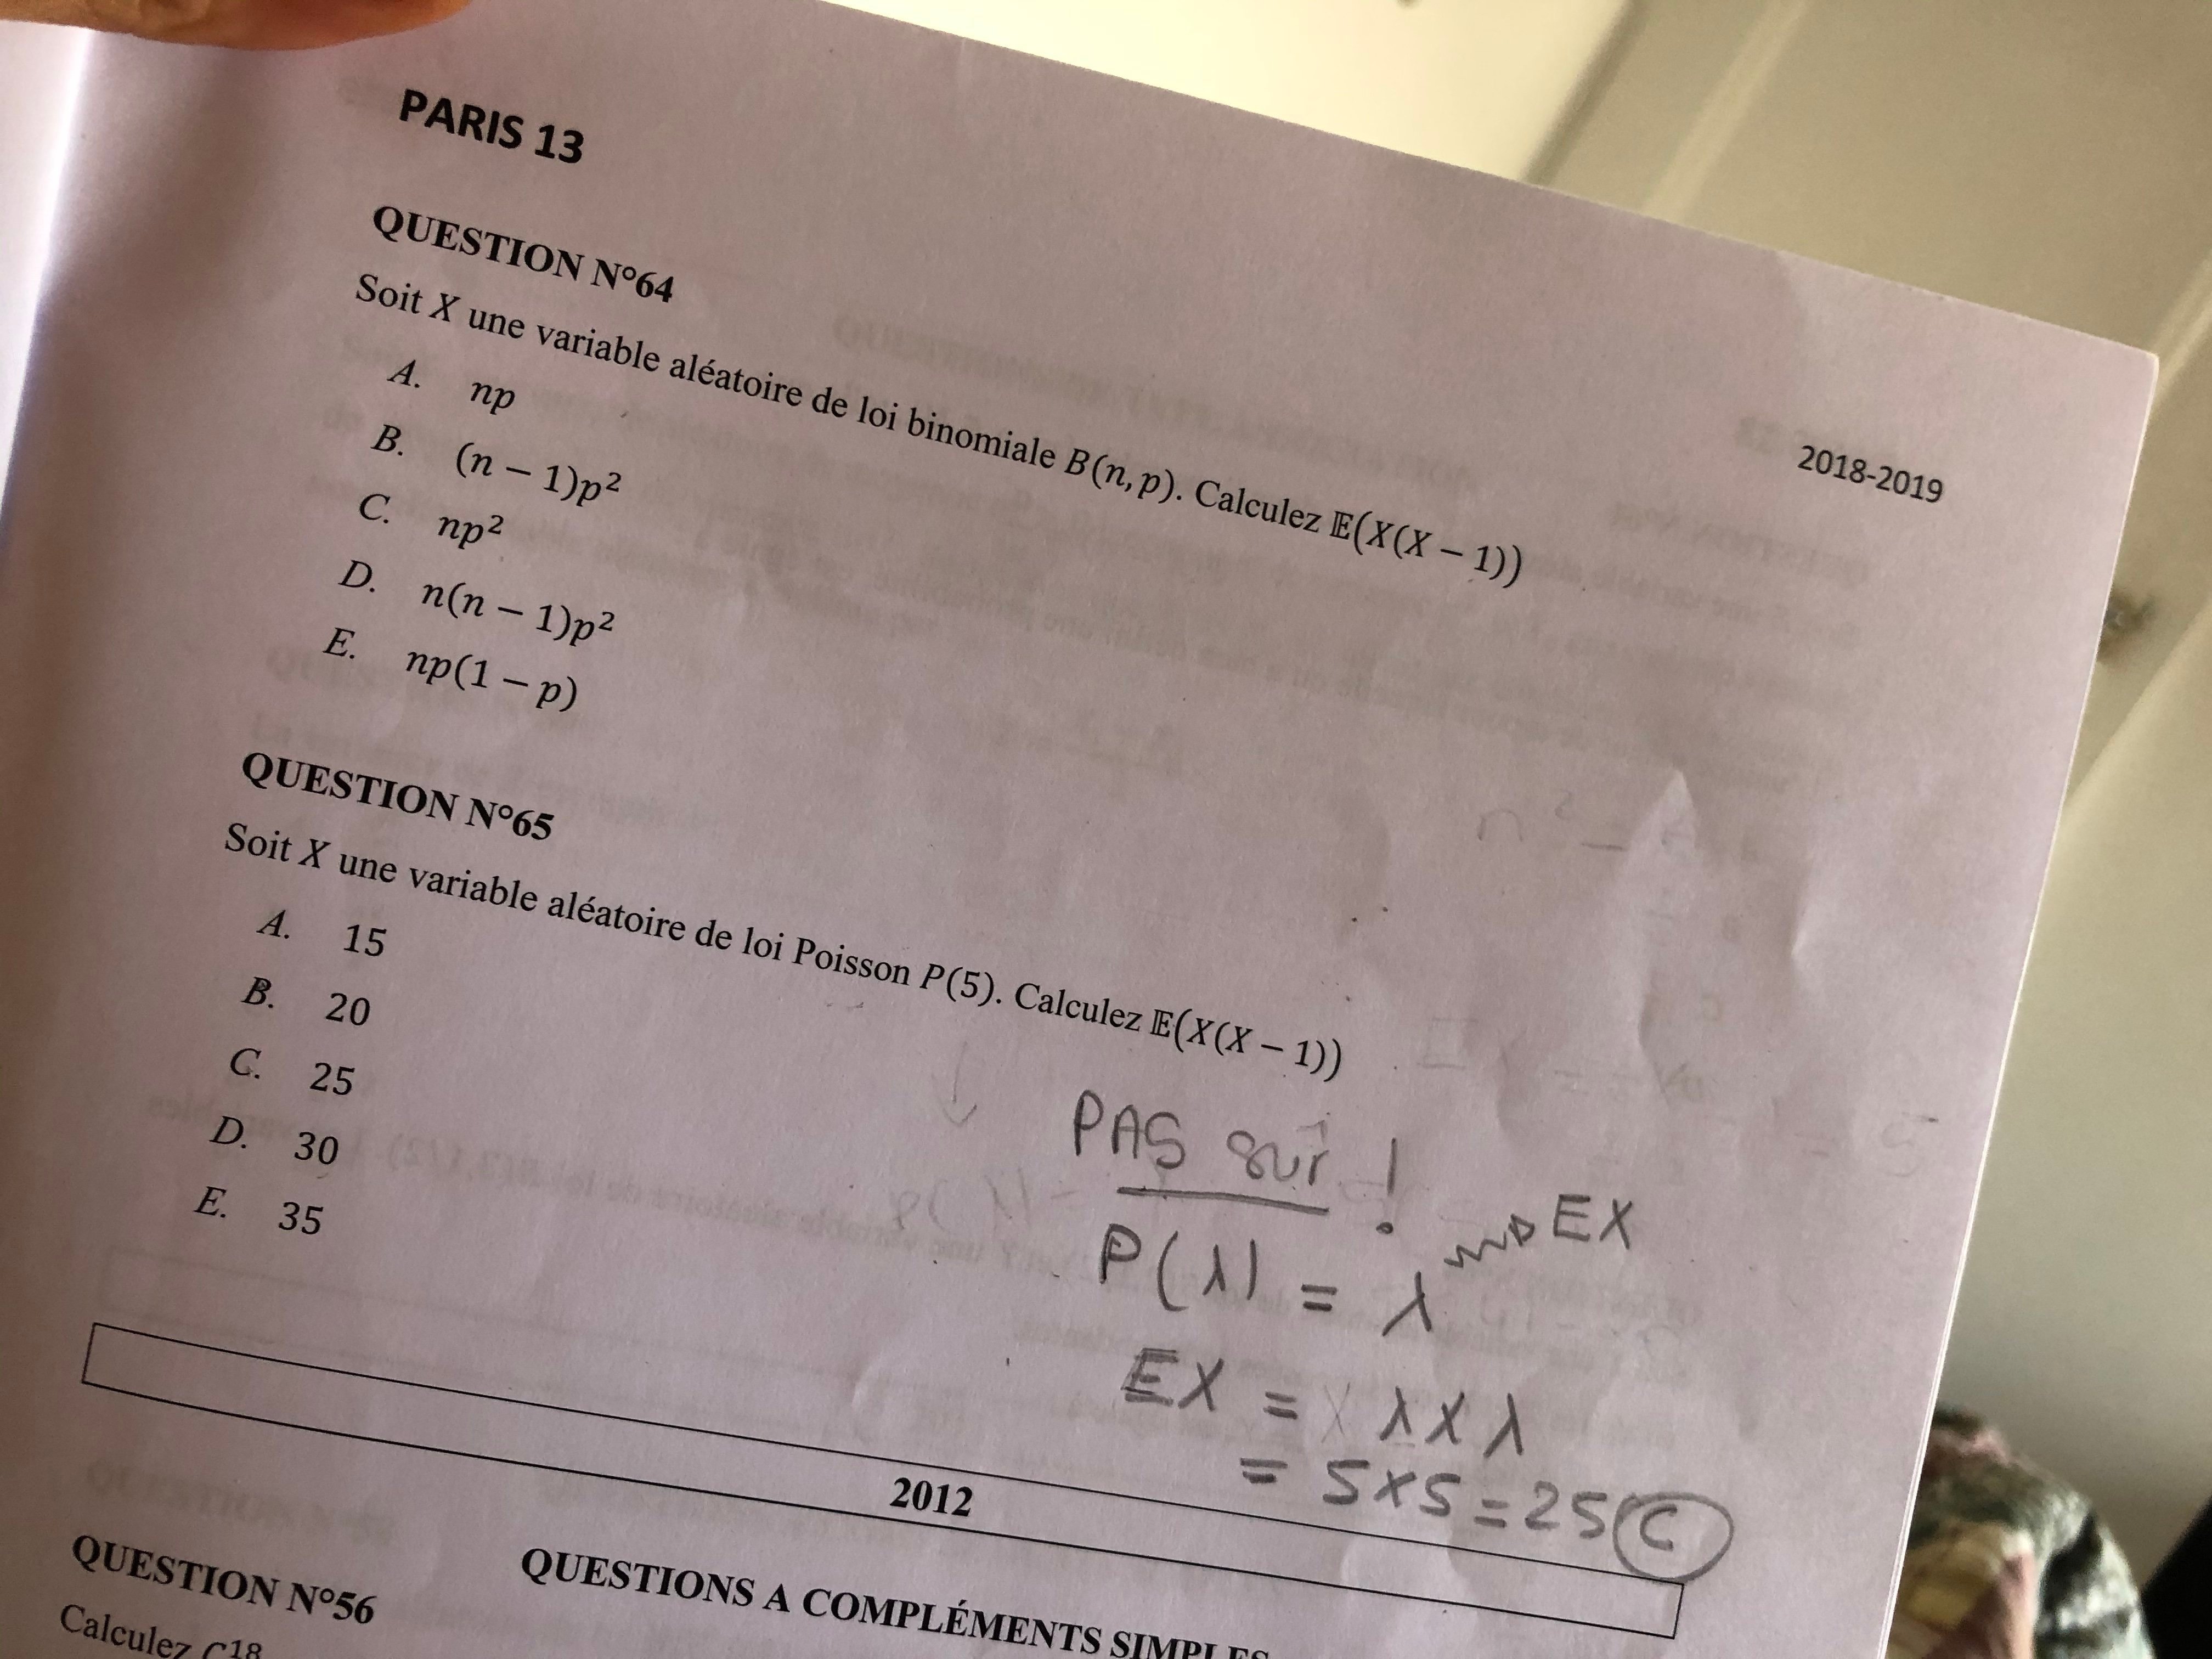 PARIS 13
2018-2019
QUESTION N°64
Soit X une variable aléatoire de loi binomiale B(n, p). Calculez 𝔼(X(X − 1))
A. np
B. (n − 1)p²
C. np²
D. n(n − 1)p²
E. np(1 − p)
QUESTION N°65
Soit X une variable aléatoire de loi Poisson P(5). Calculez 𝔼(X(X − 1))
A. 15
B. 20
C. 25
D. 30
E. 35
PAS sûr !
P(λ) = λ → EX
EX = λ x λ
= 5x5 = 25 C
2012
QUESTIONS A COMPLÉMENTS SIMPLES
QUESTION N°56
Calculez C¹⁸